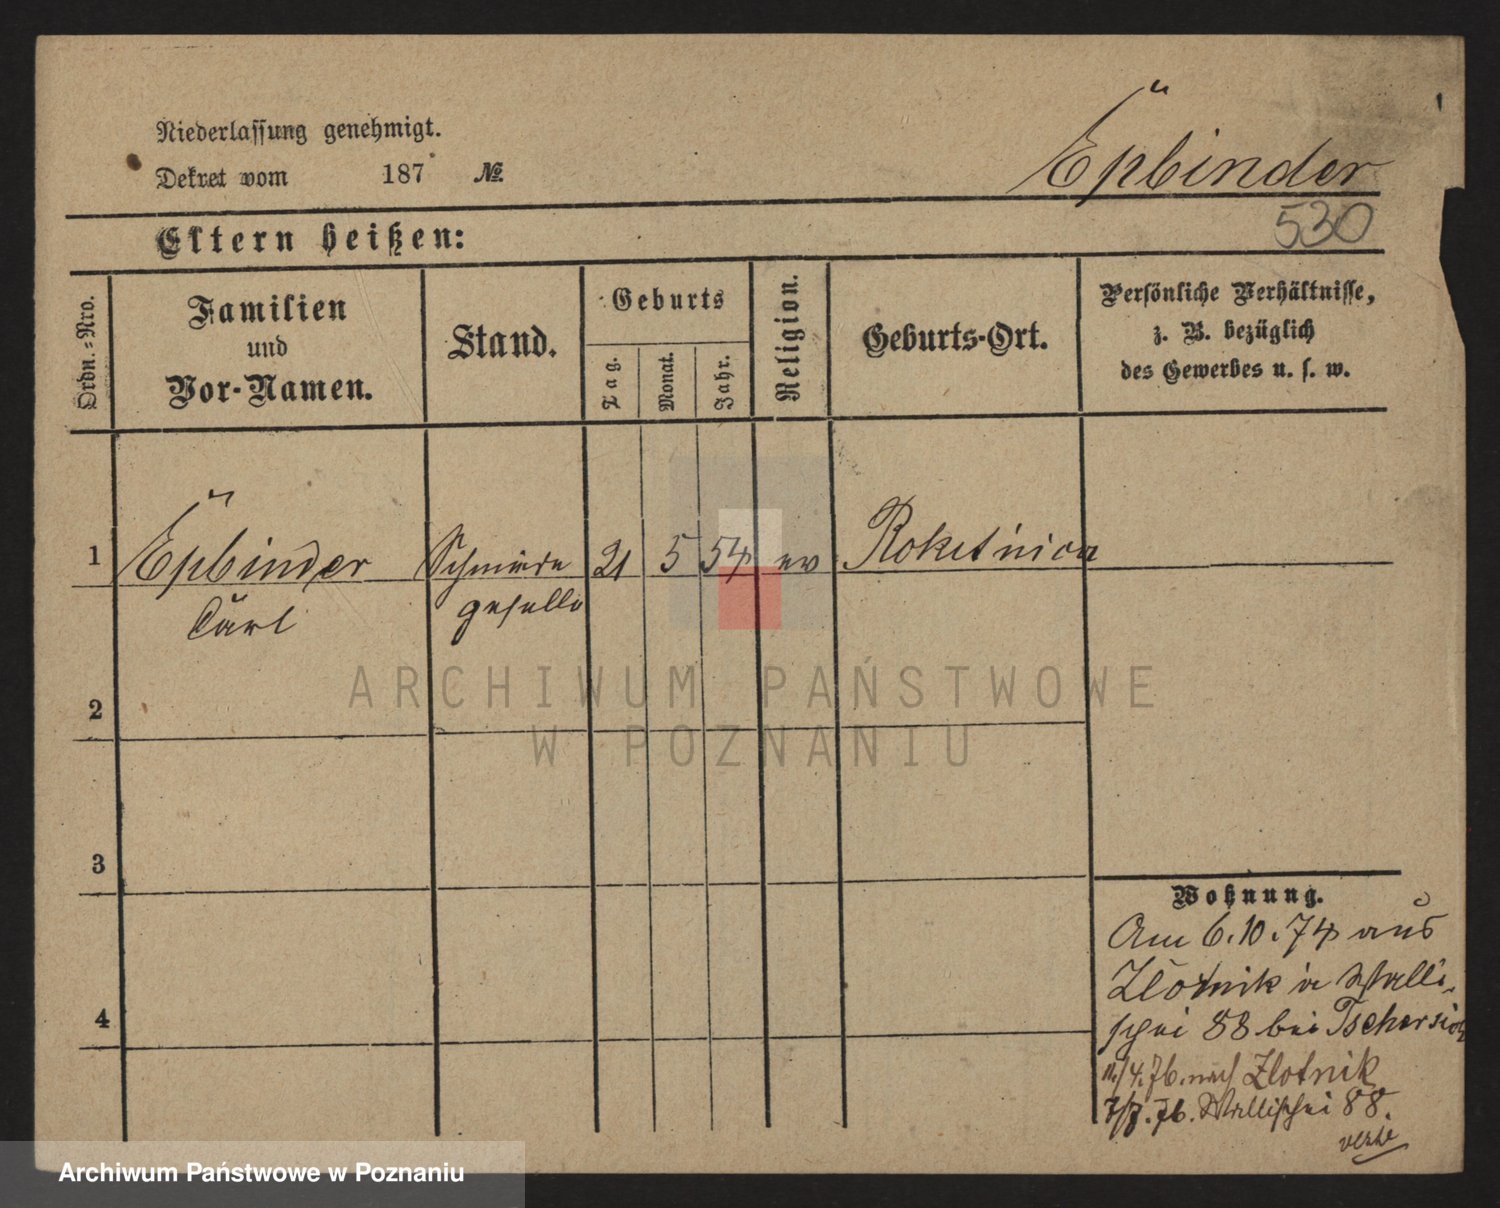 Niederlassung genehmigt.
Dekret vom 187 №
Epbinder
530
Eltern heißen:
Ordn.-Nro.
Familien
und
Vor-Namen.
Stand.
Geburts
Tag.
Monat.
Jahr.
Religion.
Geburts-Ort.
Persönliche Verhältnisse,
z. B. bezüglich
des Gewerbes u. s. w.
1 Epbinder Schmiede 21 5 54 ev Roketnica
Carl geselle
2
3
4
Wohnung.
Am 6.10.74 aus
Zlotnik in Walli-
schei 88 bei
11/4.76. nach Zlotnik
7/8.76. Wallischei 88.
ARCHIWUM PAŃSTWOWE
W POZNANIU
Archiwum Państwowe w Poznaniu